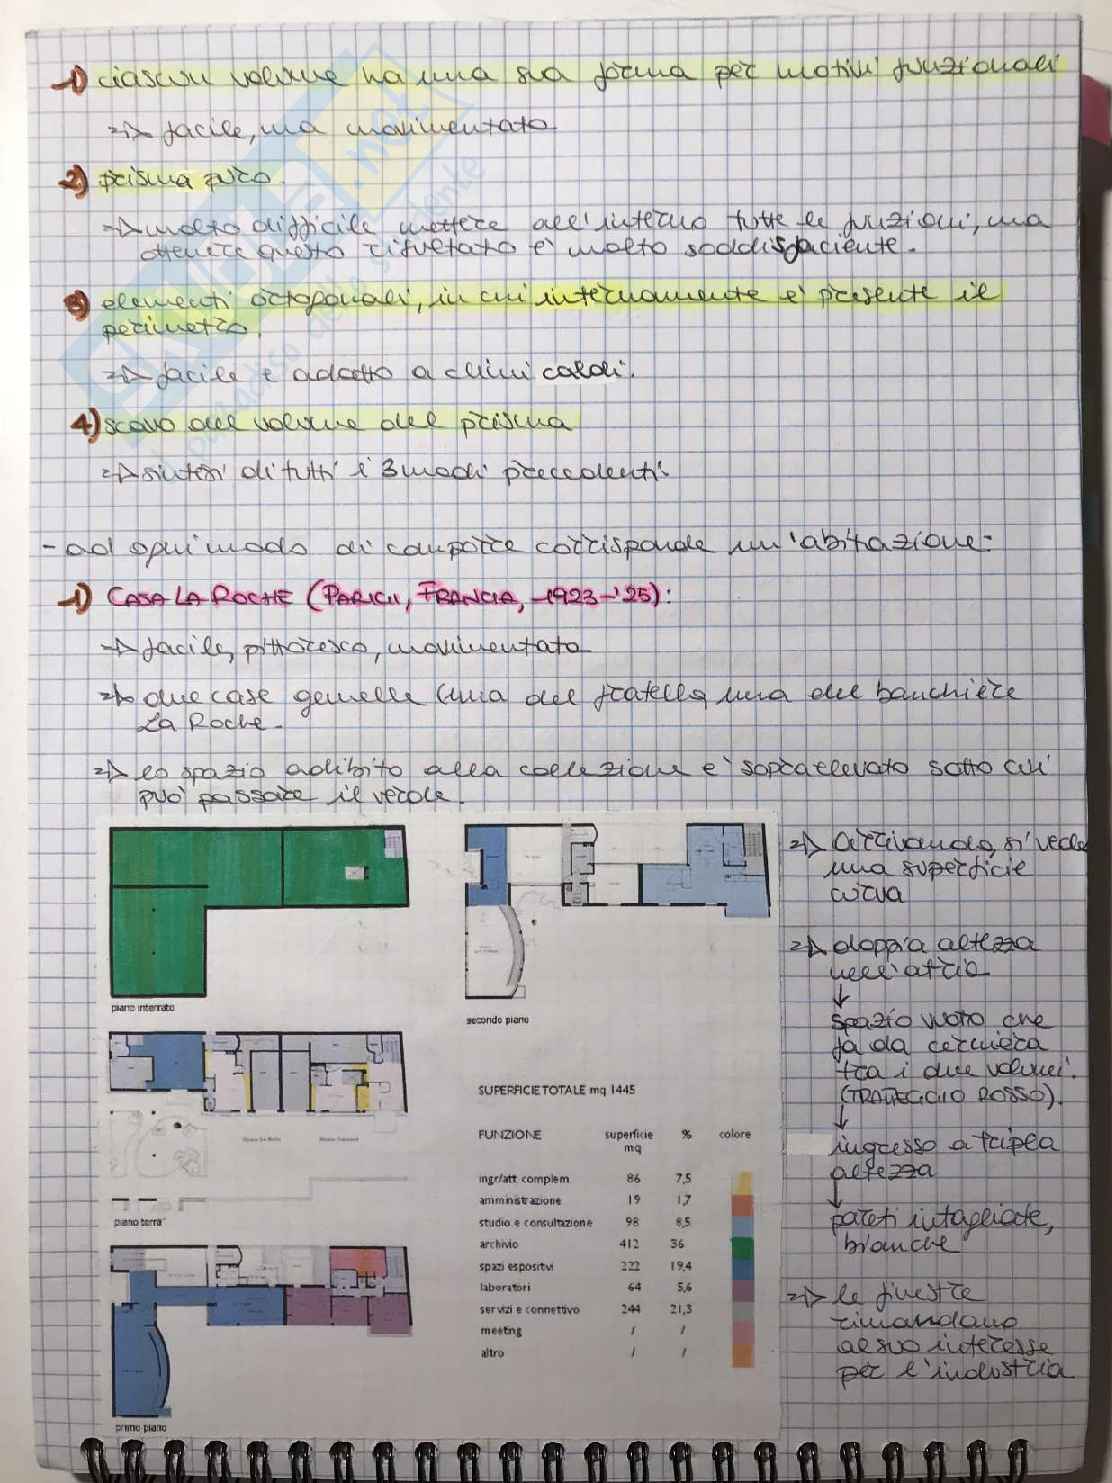 1) ciascun volume ha una sua forma per motivi funzionali
=> facile, ma movimentato
2) prisma puro.
=> molto difficile mettere all'interno tutte le funzioni, ma
ottenere questo risultato è molto soddisfaciente.
3) elementi octogonali, in cui internamente è presente il
perimetro.
=> facile e adatto a climi caldi.
4) scavo del volume del prisma
=> sintesi di tutti i 3 modi precedenti.
- ad ogni modo di comporre corrisponde un'abitazione:
1) CASA LA ROCHE (PARIGI, FRANCIA, 1923-'25):
=> facile, pittoresco, movimentato
=> due case gemelle (una del fratello, una del banchiere
La Roche.
=> lo spazio adibito alla collezione è sopraelevato sotto cui
può passare il veicolo.
piano interrato
secondo piano
piano terra
primo piano
SUPERFICIE TOTALE mq 1445
FUNZIONE superficie mq % colore
ingr/att complem. 86 7,5
amministrazione 19 1,7
studio e consultazione 98 8,5
archivio 412 36
spazi espositvi 222 19,4
laboratori 64 5,6
servizi e connettivo 244 21,3
meeting / /
altro / /
=> Arrivando, si vede
una superficie
curva
=> doppia altezza
nell'atrio
↓
spazio vuoto che
fa da cerniera
tra i due volumi.
(TRATTEGGIO ROSSO).
↓
ingresso a tripla
altezza
↓
pareti intagliate,
bianche
=> le finestre
rimandano
al suo interesse
per l'industria